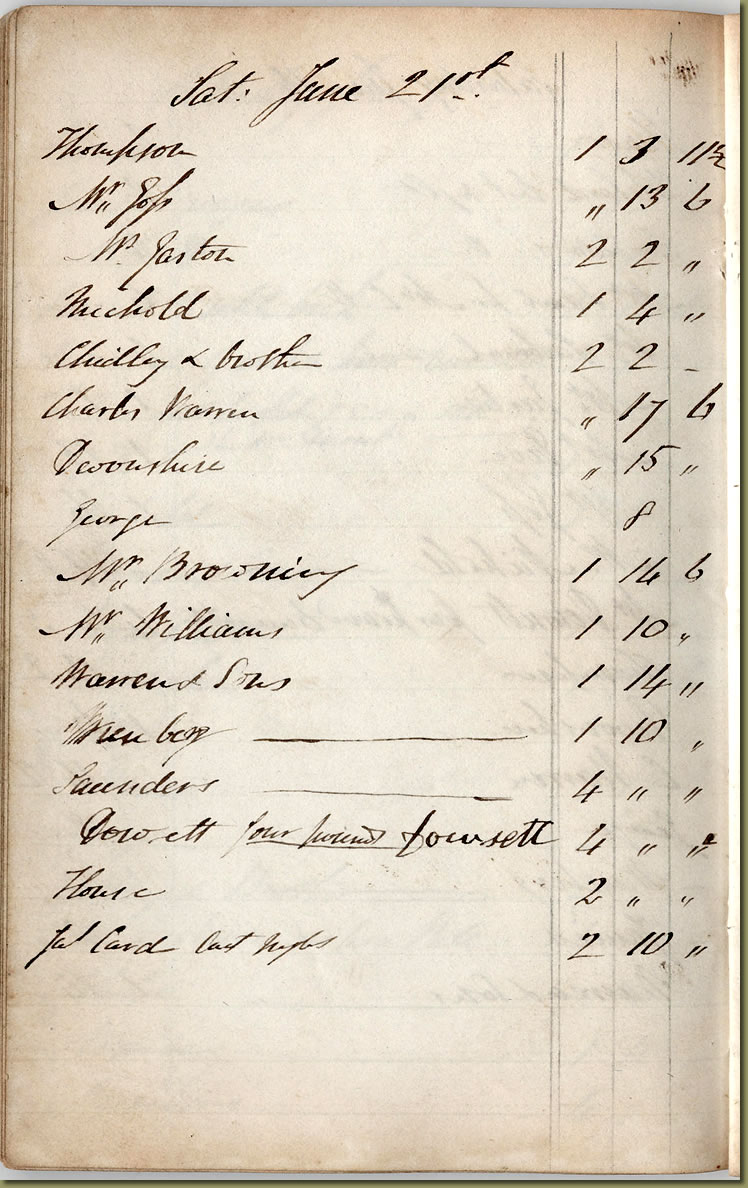 Sat: June 21st
Thompson 1 3 11½
Mr. Goss " 13 6
Mr. Easton 2 2 "
Mechold 1 4 "
Chidley & brother 2 2 -
Charles Warren " 17 6
Devonshire " 15 "
George 8
Mr. Browning 1 14 6
Mr. Williams 1 10 "
Warren & Sons 1 14 "
1 10 "
Saunders 4 " "
Dowsett four pounds Dowsett 4 " "
House 2 " "
Jas Card last 2 10 "